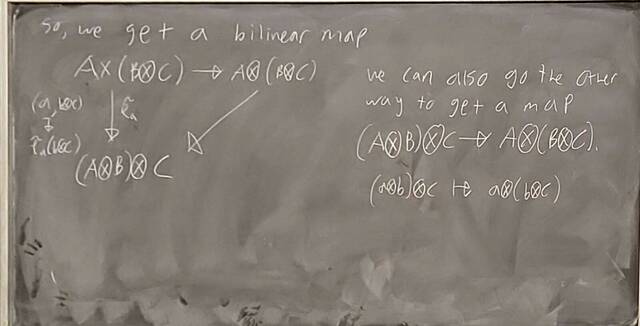 So, we get a bilinear map
A×(B⊗C) → A⊗(B⊗C)
(a, b⊗c)
↦
f̃ₐ(b⊗c)
f̃ₐ
(A⊗B)⊗C
we can also go the other
way to get a map
(A⊗B)⊗C → A⊗(B⊗C).
(a⊗b)⊗c ↦ a⊗(b⊗c)